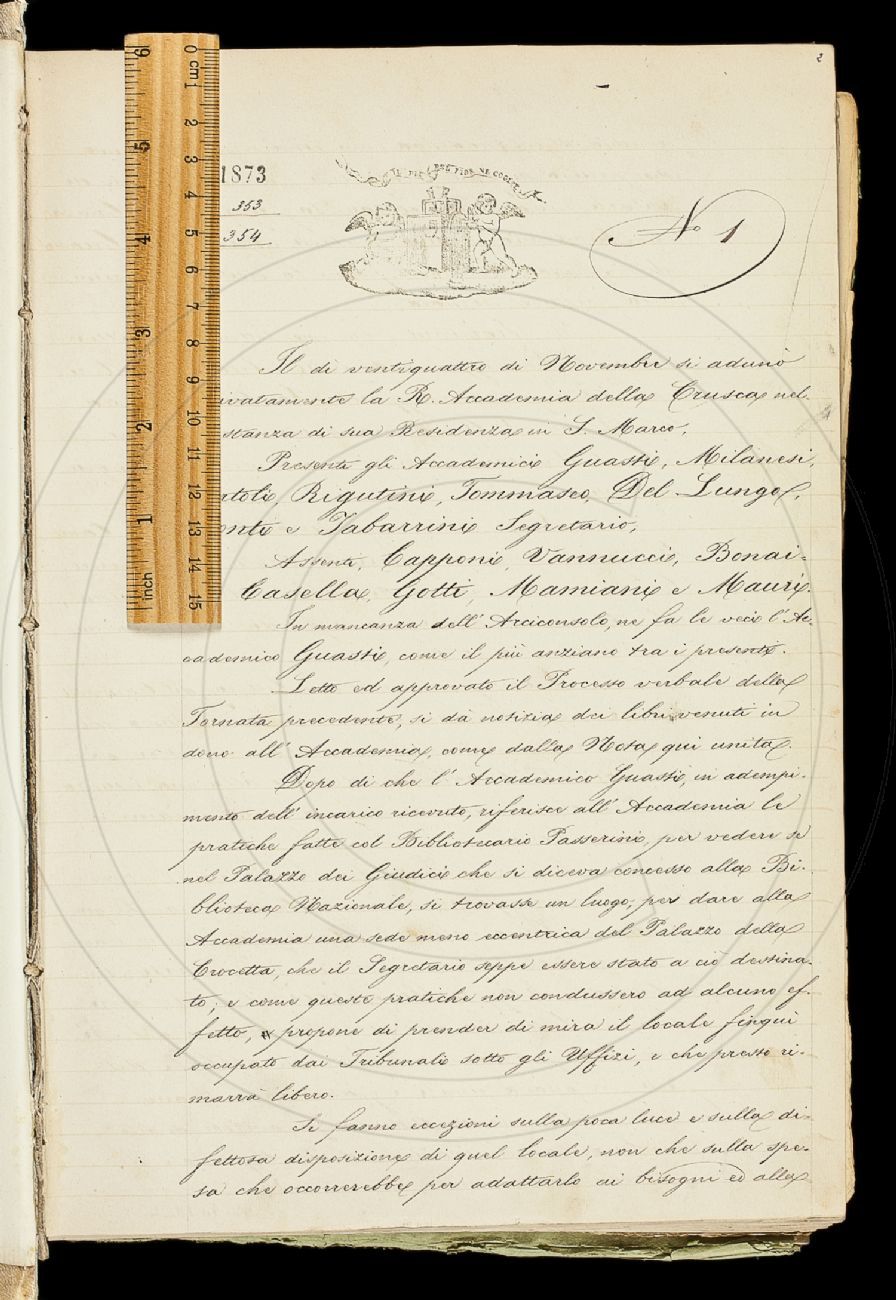 2
1873
353
354
IL PIÙ BEL FIOR NE COGLIE
No 1
Il dì ventiquattro di Novembre si adunò
ivatamente la R. Accademia della Crusca nel
stanza di sua Residenza in S. Marco.
Presenti gli Accademici Guasti, Milanesi,
rtoli, Rigutini, Tommaseo, Del Lungo,
onti e Tabarrini Segretario,
Assenti, Capponi, Vannucci, Bonai-
Casella, Gotti, Mamiani e Mauri.
In mancanza dell' Arciconsolo, ne fa le veci l' Ac-
cademico Guasti, come il più anziano tra i presenti.
Letto ed approvato il Processo verbale della
Tornata precedente, si dà notizia dei libri venuti in
dono all' Accademia, come dalla Nota qui unita.
Dopo di che l' Accademico Guasti, in adempi-
mento dell' incarico ricevuto, riferisce all' Accademia le
pratiche fatte col Bibliotecario Passerini, per vedere se
nel Palazzo dei Giudici che si diceva concesso alla Bi-
blioteca Nazionale, si trovasse un luogo, per dare alla
Accademia una sede meno eccentrica del Palazzo della
Crocetta, che il Segretario seppe essere stato a ciò destina-
to; e come queste pratiche non condussero ad alcuno ef-
fetto, propone di prender di mira il locale finqui
occupato dai Tribunali sotto gli Uffizi, e che presto ri-
marrà libero.
Si fanno eccezioni sulla poca luce e sulla di-
fettosa disposizione di quel locale, non che sulla spe-
sa che occorrerebbe per adattarlo ai bisogni ed alla
0 cm 1 2 3 4 5 6 7 8 9 10 11 12 13 14 15
6 5 4 3 2 1 inch